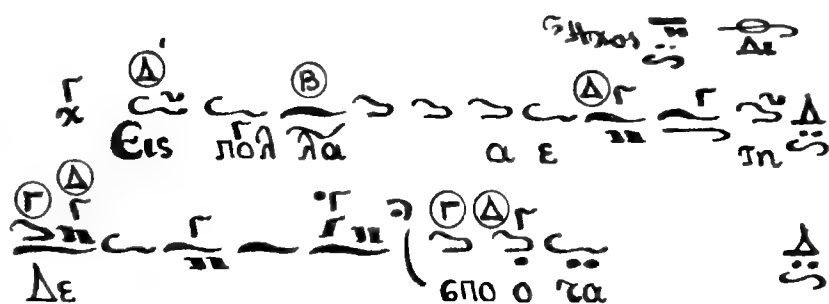 Ήχος Δι
Δ Β Δ
Εις πολ λα α ε τη
Γ Δ Γ Δ
Δε σπο ο τα